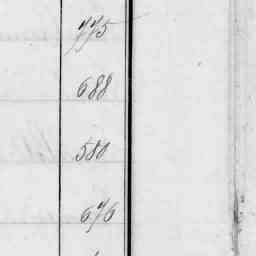 775
688
580
676